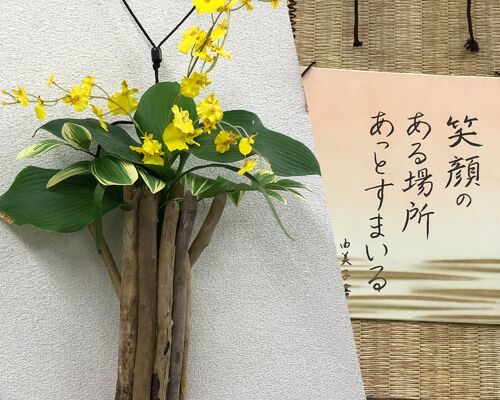 笑顔の
ある場所
あっとすまいる
由美